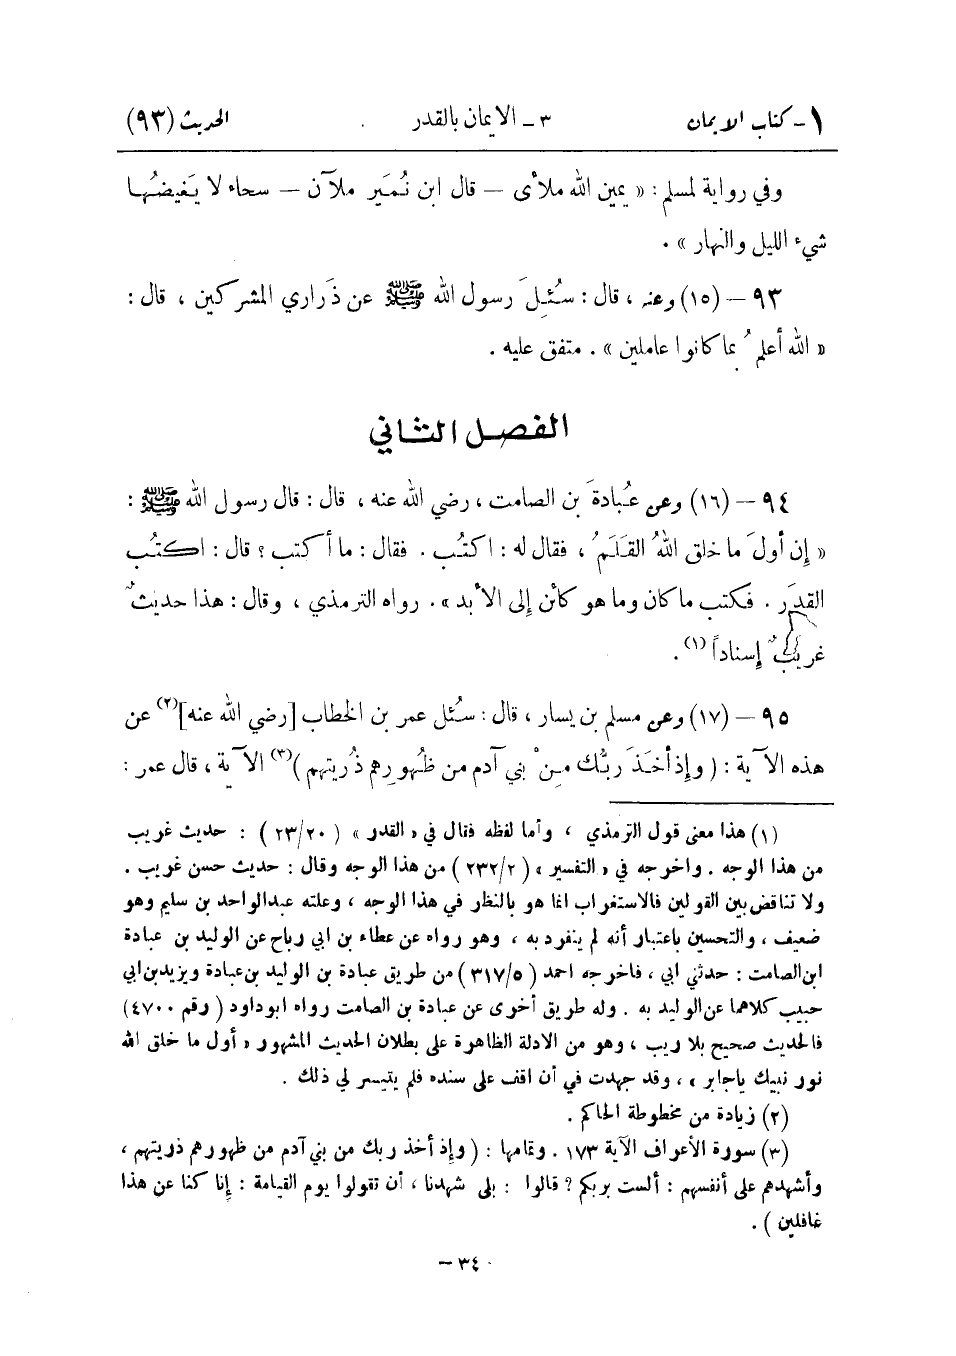 ١ - كتاب الايمان ٣ - الايمان بالقدر الحديث (٩٣)
وفي رواية لمسلم : « يمين الله ملأى — قال ابن نُمَير ملآن — سحاء لا يَغيضُها
شيء الليل والنهار » .
٩٣ — (١٥) وعنه ، قال : سُئِلَ رسول الله ﷺ عن ذَراري المشركين ، قال :
« الله أعلمُ بما كانوا عاملين » . متفق عليه .
الفصل الثاني
٩٤ — (١٦) وعن عُبادةَ بن الصامت ، رضي الله عنه ، قال : قال رسول الله ﷺ :
« إن أولَ ما خلق اللهُ القَلَمُ ، فقال له : اكتُب . فقال : ما أكتب ؟ قال : اكتُب
القدَر . فكتب ما كان وما هو كائن إلى الأبد » . رواه الترمذي ، وقال : هذا حديثٌ
غريبٌ إسناداً (١) .
٩٥ — (١٧) وعن مسلم بن يسار ، قال : سُئل عمر بن الخطاب [رضي الله عنه](٢) عن
هذه الآية : ( وإذ أخَذَ ربُّك مِنْ بني آدم من ظُهورِهم ذُريتهم )(٣) الآية ، قال عمر :
(١) هذا معنى قول الترمذي ، وأما لفظه فقال في « القدر » ( ٢٣/٢٠ ) : حديث غريب
من هذا الوجه . واخرجه في « التفسير » ( ٢٣٢/٢ ) من هذا الوجه وقال : حديث حسن غريب .
ولا تناقض بين القولين فالاستغراب انما هو بالنظر في هذا الوجه ، وعلته عبدالواحد بن سليم وهو
ضعيف ، والتحسين باعتبار أنه لم ينفرد به ، وهو رواه عن عطاء بن ابي رباح عن الوليد بن عبادة
ابن الصامت : حدثني أبي ، فاخرجه احمد ( ٣١٧/٥ ) من طريق عبادة بن الوليد بن عبادة ويزيد بن ابي
حبيب كلاهما عن الوليد به . وله طريق أخرى عن عبادة بن الصامت رواه ابو داود ( رقم ٤٧٠٠ )
فالحديث صحيح بلا ريب ، وهو من الادلة الظاهرة على بطلان الحديث المشهور « أول ما خلق الله
نور نبيك ياجابر » ، وقد جهدت في أن اقف على سنده فلم يتيسر لي ذلك .
(٢) زيادة من مخطوطة الحاكم .
(٣) سورة الأعراف الآية ١٧٣ . وتمامها : ( وإذ أخذ ربك من بني آدم من ظهورهم ذريتهم ،
وأشهدهم على أنفسهم : ألست بربكم ؟ قالوا : بلى شهدنا ، أن تقولوا يوم القيامة : إنا كنا عن هذا
غافلين ) .
٣٤ —